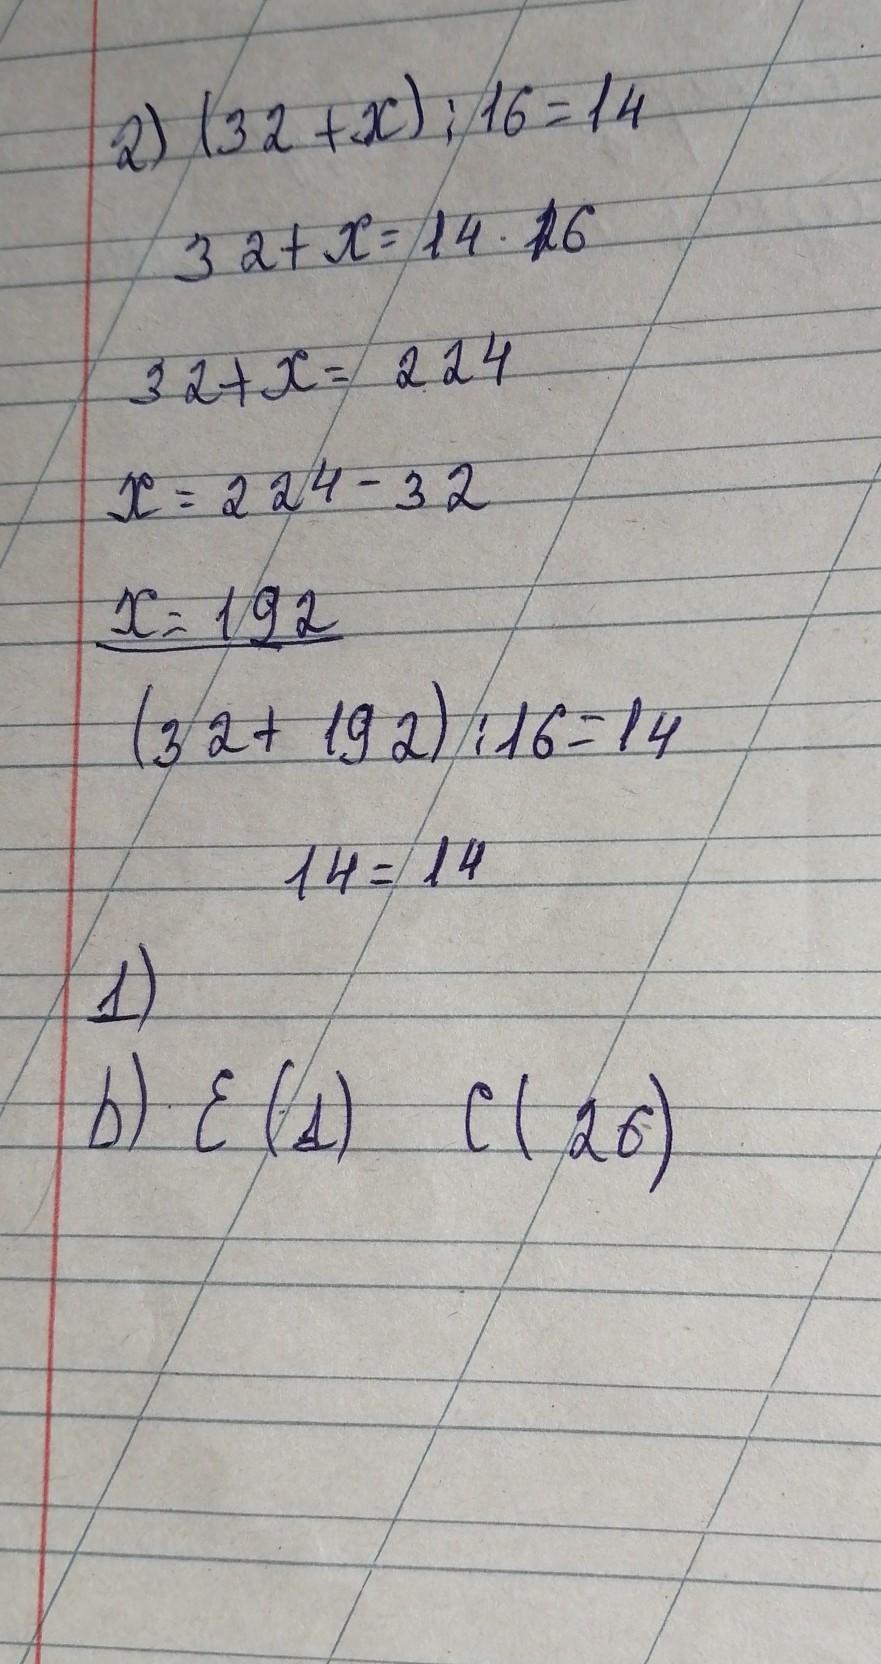 2) (32+x):16=14
32+x=14·16
32+x=224
x=224-32
x=192
(32+192):16=14
14=14
1)
b) E(1) C(26)